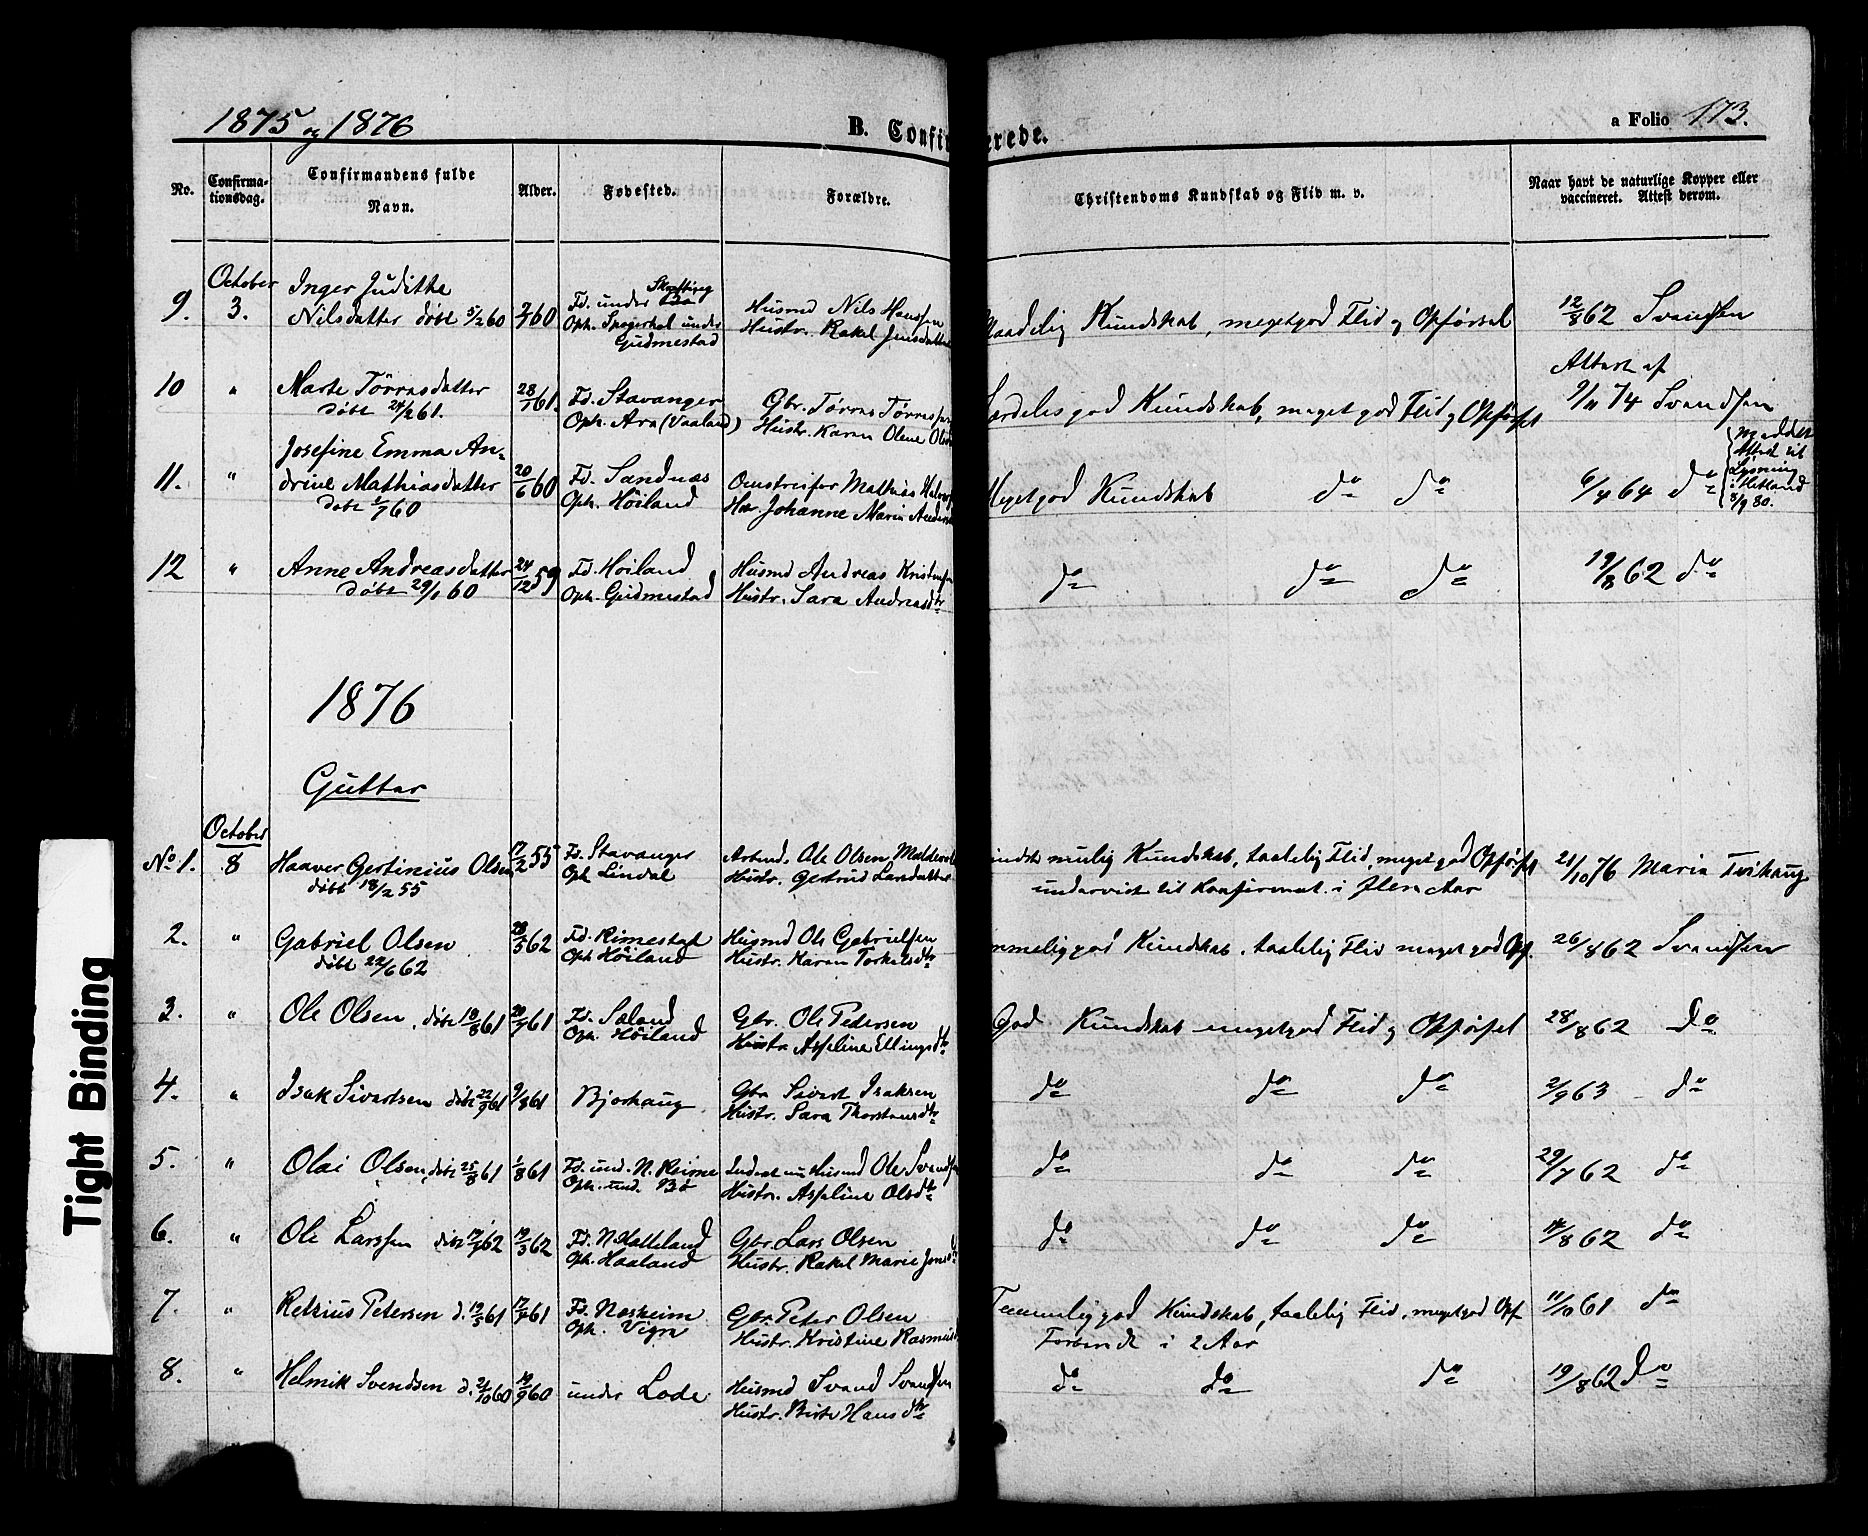 1875 og 1876
B. Confir erede.
a Folio 173.
No.
Confirma-
tionsdag.
Confirmandens fulde
Navn.
Alder.
Fødested.
Forældre.
Christendoms Kundskab og Flid m. v.
Naar havt de naturlige Kopper eller
vaccineret. Attest derom.
October
9. 3. Inger Juditha
Nilsdatter døbt 5/2 60
Fd. under
Oph. under
Gudmestad
Husmd Nils Hanssen
Hustr. Rakel Jensdatter
Maadelig Kundskab, megetgod Flid og Opførsel
12/8 62 Svendsen
10 " Marte Tørresdatter
døbt 24/2 61.
28/1 61.
Fd. Stavanger
Oph. Ara (Vaaland)
Gbr. Tørres Tørressen
Hustr. Karen Olene
Særdeles god Kundskab, meget god Flid og Opførsel
Attest af
9/11 74 Svendsen
11. " Josefine Emma An-
drine Mathiasdatter
døbt 1/7 60
20/6 60
Fd. Sandnæs
Oph. Höiland
Omstreifer Mathias
Johanne Marie
Meget god Kundskab do do
6/4 64 do
Meddelt
Attest til
Lysning
i Hetland
8/9 80.
12 " Anne Andreasdatter
døbt 29/1 60
24/12 59
Fd. Höiland
Oph. Gudmestad
Husmd Andreas
Hustr. Sara Andreasdtr
do do do
19/8 62 do
1876
Gutter
October
No 1. 8 Haaver Gertinius Olsen
døbt 18/2 55
17/2 55
Fd. Stavanger
Oph Lindal
Arbmd. Ole Olsen
Hustr. Gertrud Larsdatter
mindst mulig Kundskab, taalelig Flid, meget god Opførsel
undervist til Konfirmat. i flere Aar
21/10 76 Maria
2. " Gabriel Olsen
døbt 22/6 62
28/5 62
Fd. Rimestad
Oph Höiland
Husmd Ole Gabrielsen
Hustr. Karen Torkelsdtr
Temmelig god Kundskab, taalelig Flid meget god Opf.
26/8 62 Svendsen
3. " Ole Olsen, døbt 18/8 61
20/7 61
Fd. Saland
Oph. Höiland
Gbr. Ole Petersen
Hustr Asseline Ellingsdtr
God Kundskab megetgod Flid og Opførsel
28/8 62 Do
4. " Isak Sivertsen døbt 22/9 61
9/8 61
Bjorhaug
Gbr Sivert Isaksen
Hustr. Sara Thorstensdtr
do do do
2/9 63 do
5. " Olai Olsen, døbt 25/8 61
1/8 61
Fd. und. N. Reime
Oph. und. Bø
Inderst nu Husmd Ole Svendsen
Hustr. Asseline Olsdtr
do do do
29/7 62 do
6. " Ole Larssen
19/3 62
Fd. N Hatteland
Oph. Haaland
Gbr. Lars Olsen
Hustr. Rakel Marie
do do do
14/8 62 do
7. " Retzius Petersen d. 19/5 61
17/4 61
Fd. Næsheim
Oph. Vigre
Gbr Peter Olsen
Hustr. Kristine
Temmelig god Kundskab, taalelig Flid, megetgod Opf
Forbered i 2 Aar
11/10 61 do
8. " Helmik Svendsen d. 21/10 60
19/9 60
under Lode
Husmd Svend Svendsen
Hustr. Birte Hansdtr
do do do
19/8 62 do
Tight Binding